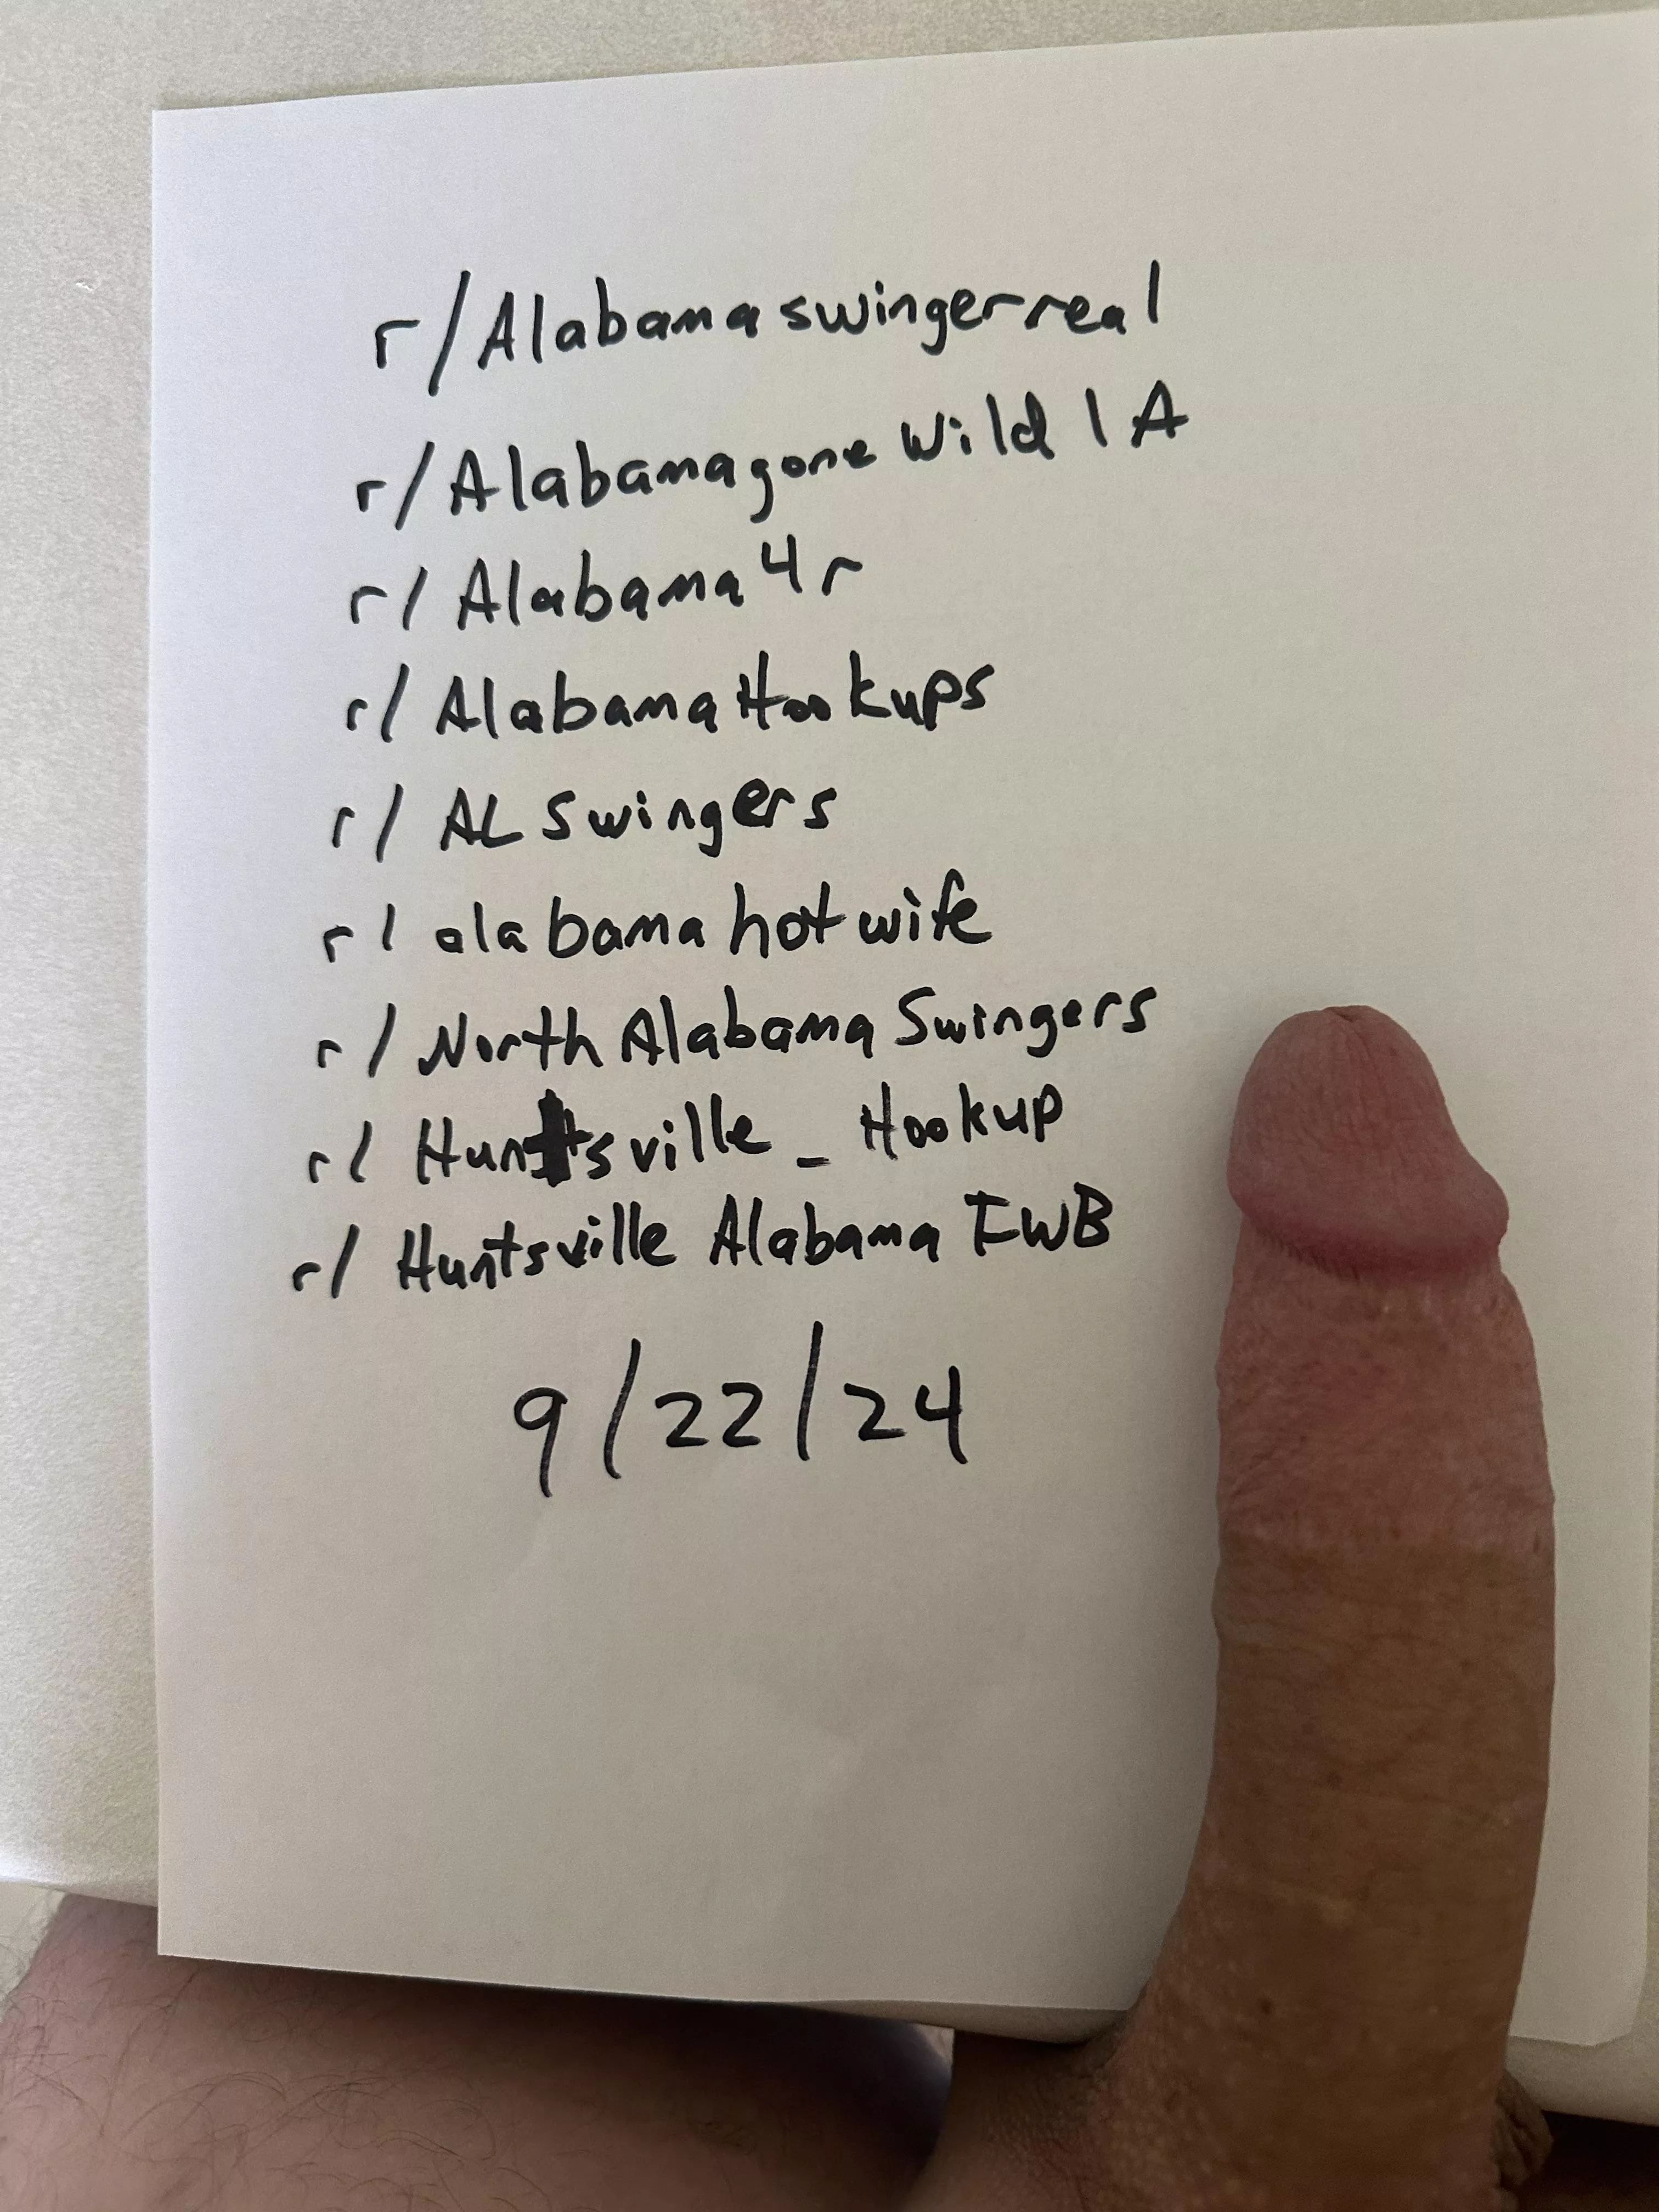 r/Alabamaswingerreal
r/Alabamagonewild1A
r/Alabama4r
r/AlabamaHookups
r/ALSwingers
r/alabamahotwife
r/NorthAlabamaSwingers
r/Huntsville_Hookup
r/HuntsvilleAlabamaFWB
9/22/24